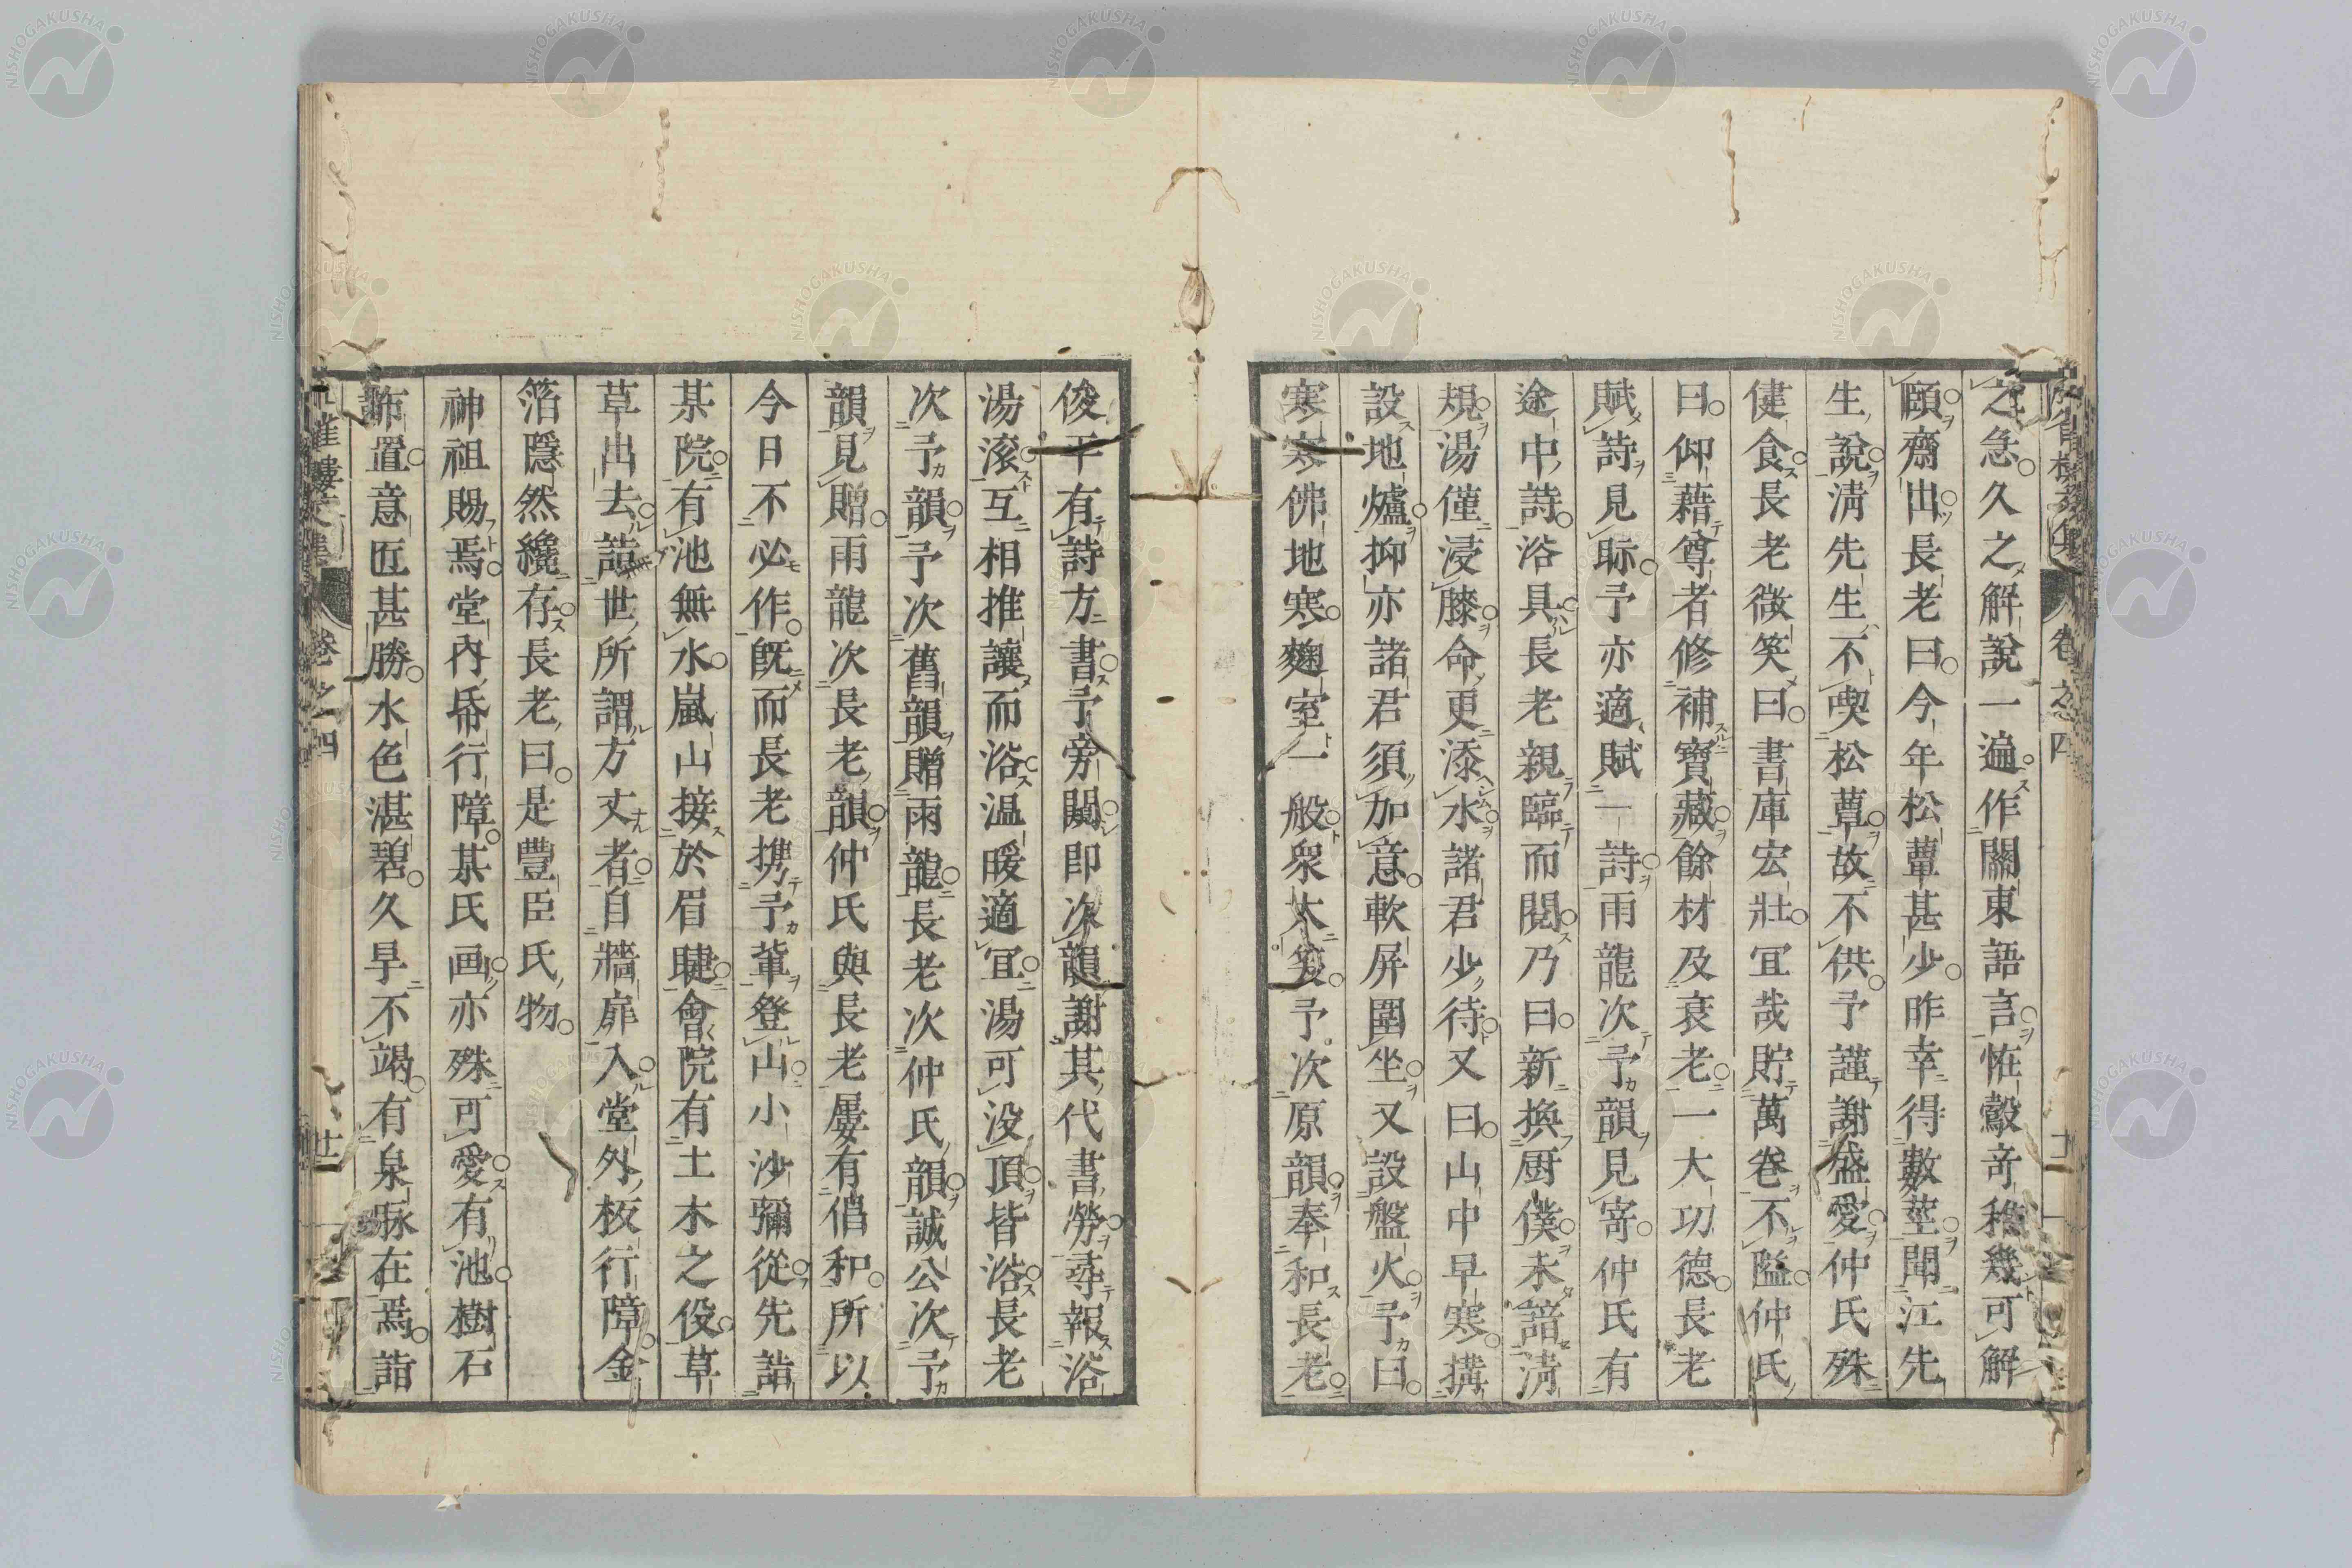 之急久之解說一遍作關東語言恠鷇奇稚幾可解
頤齋出長老曰今年松蕈甚少昨幸得數莖聞江先
生說淸先生不喫松蕈故不供予謹謝盛愛仲氏殊
健食長老微笑曰書庫宏壯宜哉貯萬卷不隘仲氏
曰仰藉尊者修補寶藏餘材及衰老一大功德長老
賦詩見眎予亦適賦一詩雨龍次予韻見寄仲氏有
途中詩浴具長老親臨而閱乃曰新換厨僕未諳淸
規湯僅浸膝命更添水諸君少待又曰山中早寒搆
設地爐抑亦諸君須加意軟屏圍坐又設盤火予曰
寒寒佛地寒麴室一般衆大笑予次原韻奉和長老
俊平有詩方書予旁闚即次韻謝其代書勞尋報浴
湯滚互相推讓而浴温暖適宜湯可没頂皆浴長老
次予韻予次舊韻贈雨龍長老次仲氏韻誠公次予
韻見贈雨龍次長老韻仲氏與長老屢有倡和所以
今日不必作既而長老携予輩登山小沙彌從先詣
某院有池無水嵐山接於眉睫會院有土木之役草
草出去詣世所謂方丈者自牆扉入堂外板行障金
箔隱然纔存長老曰是豐臣氏物
神祖賜焉堂內帋行障某氏画亦殊可愛有池樹石
布置意匠甚勝水色湛碧久早不竭有泉脉在焉詣
卷之四